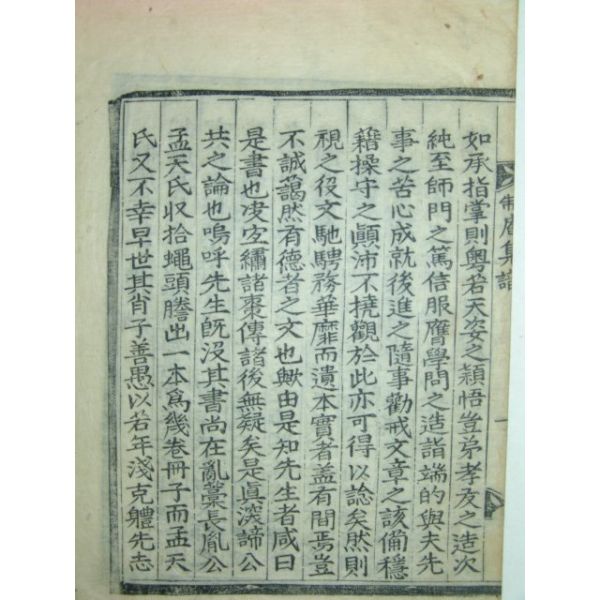 庵集譜
如承指掌則粵若天姿之穎悟豈弟孝友之造次
純至師門之篤信服膺學問之造詣端的與夫先
事之苦心成就後進之隨事勸戒文章之該備穩
籍操守之顚沛不撓觀於此亦可得以諗矣然則
視之役文馳騁務華靡而遺本實者盖有間焉豈
不誠藹然有德者之文也歟由是知先生者咸曰
是書也凌宜繡諸棗傳諸後無疑矣是眞深諦公
共之論也嗚呼先生旣沒其書尚在亂藁長胤公
孟天氏収拾蠅頭謄出一本爲幾卷冊子而孟天
氏又不幸早世其肖子善愚以若年淺克軆先志